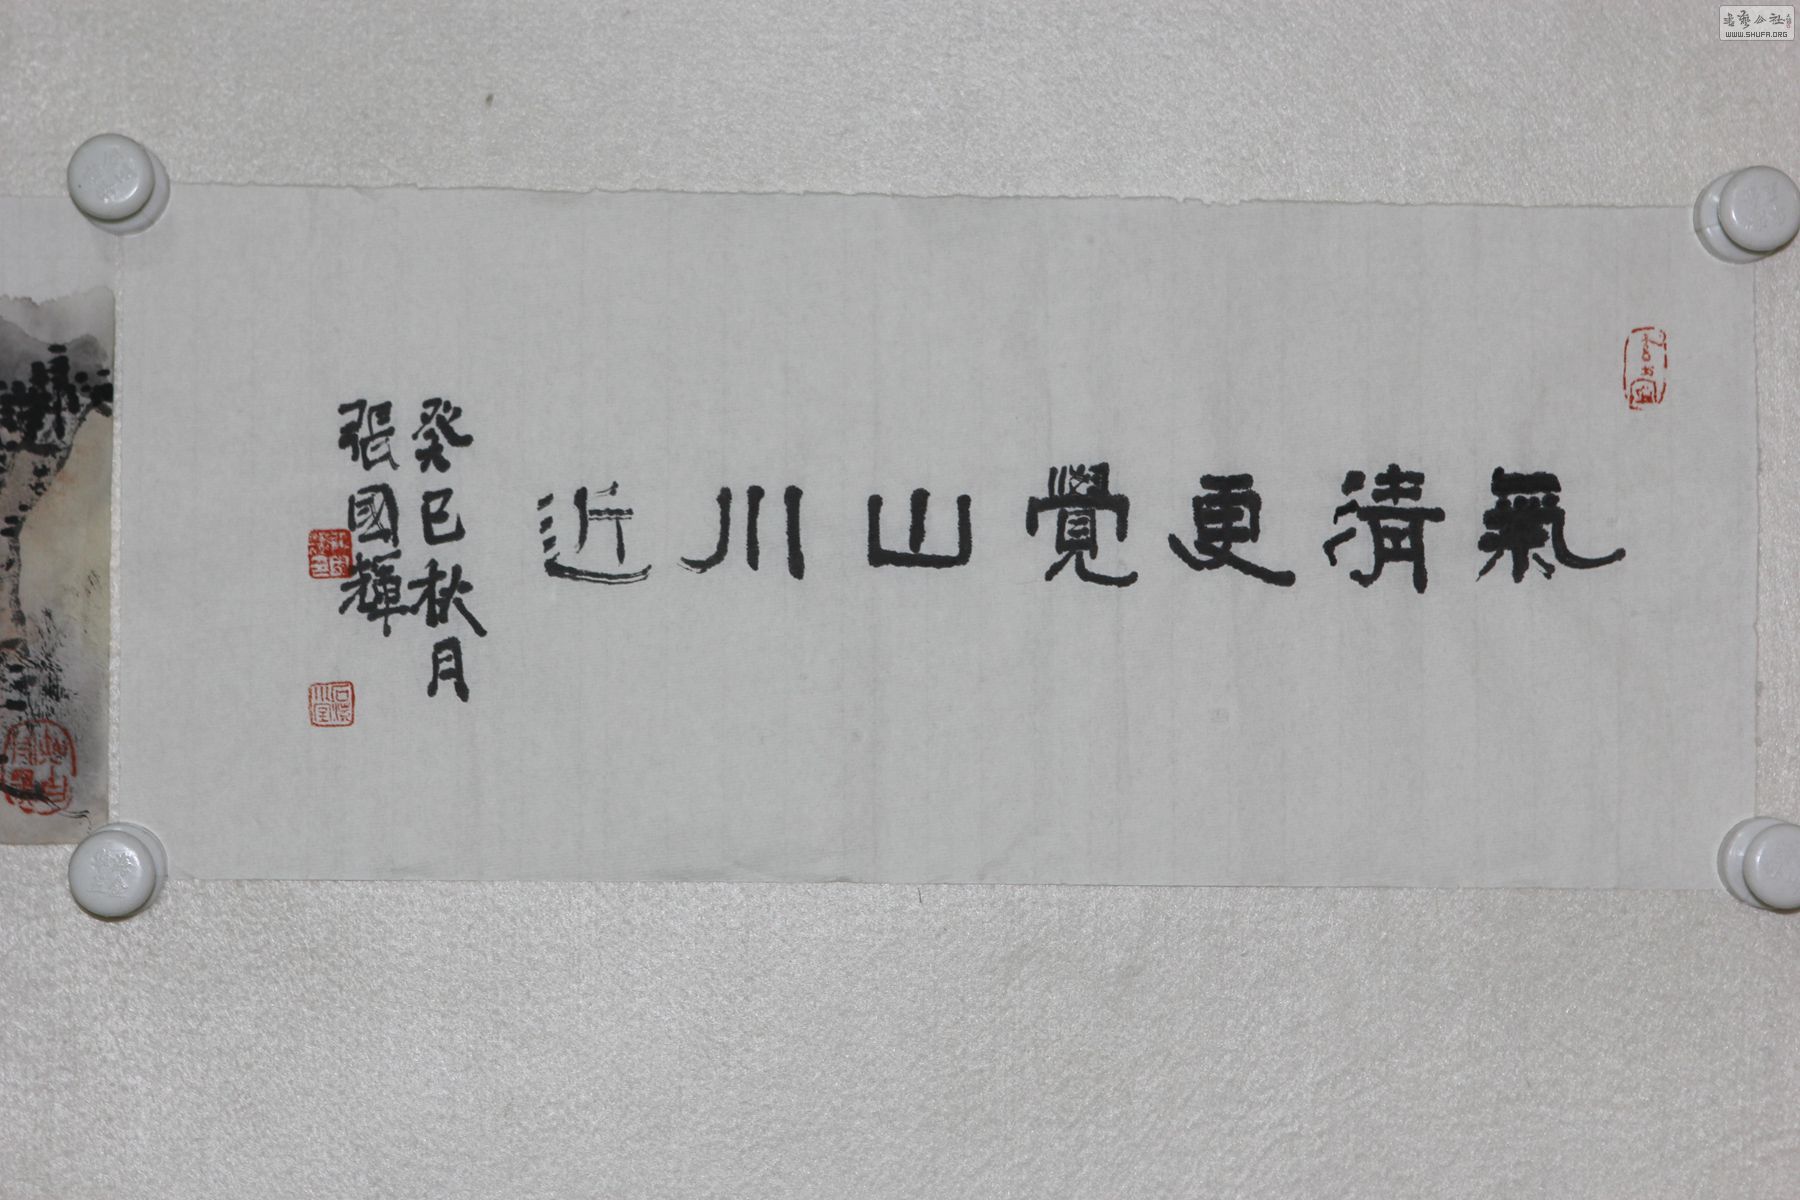 氣清更覺山川近
癸巳秋月
張國輝
書藝公社
WWW.SHUFA.ORG